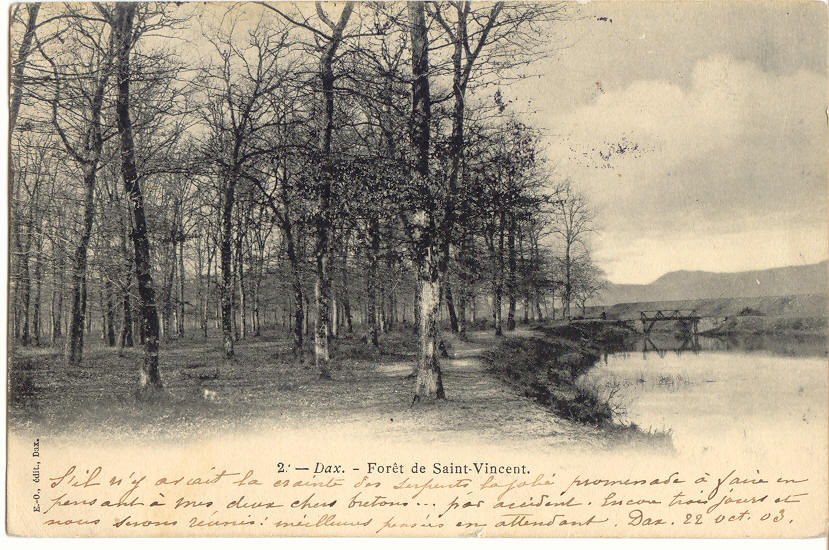 2. — Dax. - Forêt de Saint-Vincent.
E.-O., édit., Dax.
S'il n'y avait la crainte des serpents la jolie promenade à faire en
pensant à mes deux chers bretons... par accident. Encore trois jours et
nous serons réunis: meilleures pensées en attendant. Dax. 22 oct. 03.